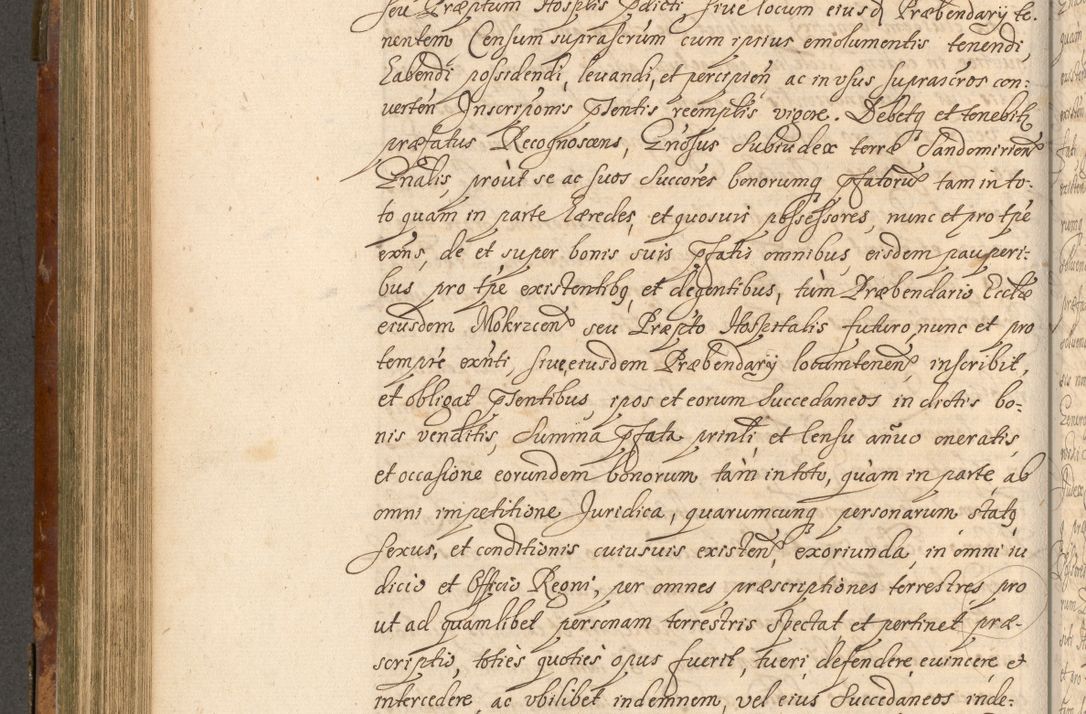 seu Præptum Hosplis pdicti sive locum eiusd Præbendarÿ te-
nentem Censum suprascrum cum ipsius emolumentis tenendi
habendi possidendi, levandi, et percipien ac in usus suprascros con-
verten Inscriponis pſentis reemplis vigore. Debetq et tenebitq
præfatus Recognoscens, Gnosus Subiudex terræ Sandomirien
Gnalis, proùt se ac suos succores bonorumq pfatorũ tam in to-
to quàm in parte hæredes, et quosuis possessores, nunc et pro tpe
exns, de et super bonis suis pfatis omnibus eisdem pauperi-
bus pro tpe existentibq et degentibus, tùm Præbendario Ecclæ
eiusdem Mokrzcen seu Præpto Hospitalis futuro nunc et pro
tempre exnti, sive eiusdem Præbendarÿ locumtenen inscribit,
et obligat pſentibus ipos et eorum Succedaneos in dictis bo-
nis venditis, Summa pfata prinli et censu añuo oneratis
et occasione eorundem bonorum tàm in toto, quàm in parte, ab
omni impetitione Juridica, quarumcunq personarum statq
sexus, et conditionis cuiusuis existen exoriunda, in omni iu
dicio et Officio Regni, per omnes præscriptiones terrestres pro
ut ad quamlibet personam terrestris spectat et pertinet præ-
scriptio, toties quoties opus fuerit, tueri defendere evincere et
intercedere, ac ubilibet indemnem, vel eius Succedaneos inde-